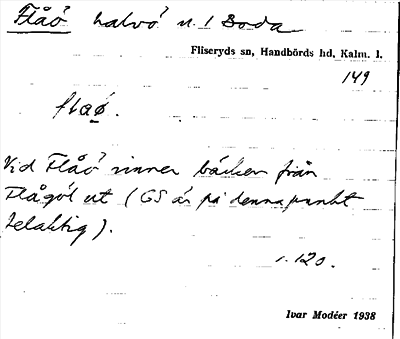 Flåö halvö n. 1 Boda
Fliseryds sn, Handbörds hd, Kalm. l.
149
flaǫ́.
Vid Flåö rinner bäcken från
Flågöl ut (GS är på denna punkt
felaktig).
1.120.
Ivar Modéer 1938